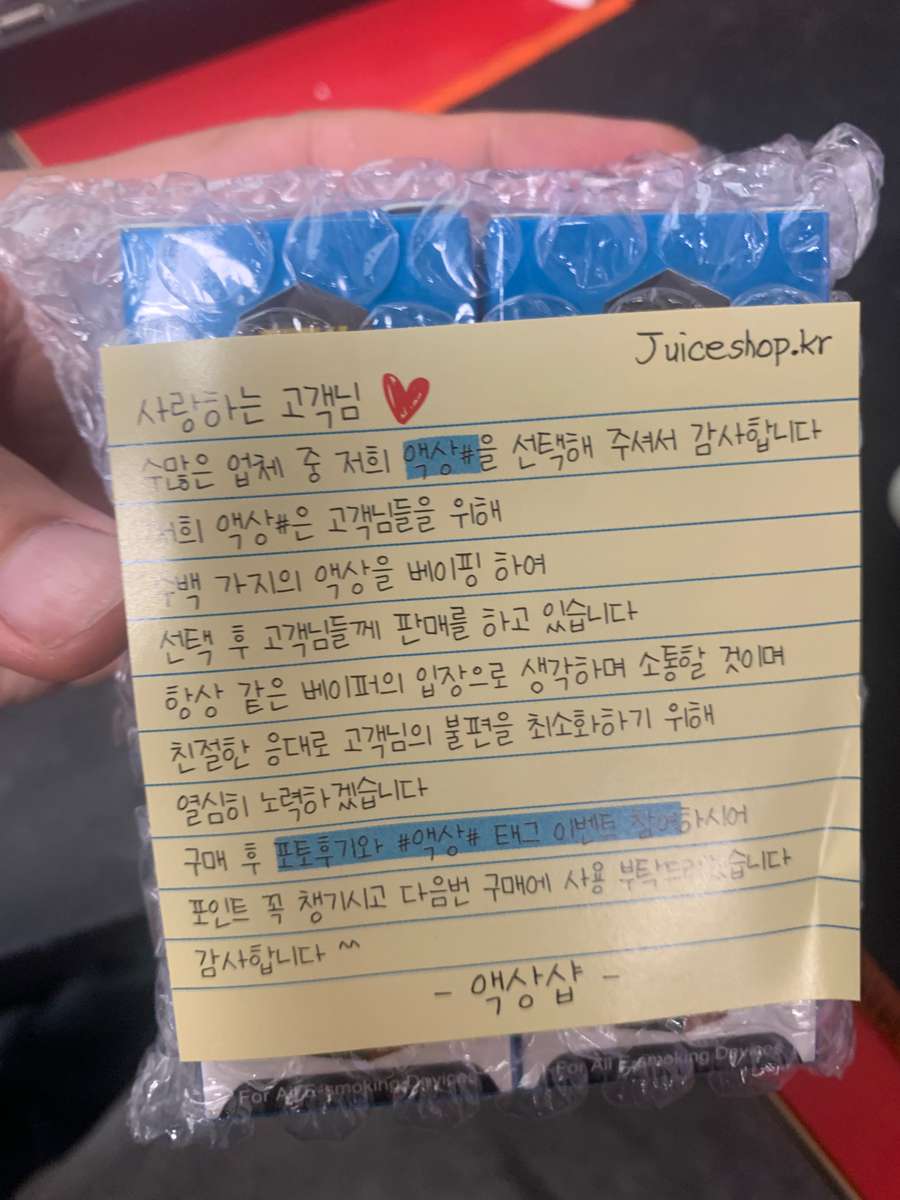 Juiceshop.kr
사랑하는 고객님
수많은 업체 중 저희 액상#을 선택해 주셔서 감사합니다
저희 액상#은 고객님들을 위해
수백 가지의 액상을 베이핑 하여
선택 후 고객님들께 판매를 하고 있습니다
항상 같은 베이퍼의 입장으로 생각하며 소통할 것이며
친절한 응대로 고객님의 불편을 최소화하기 위해
열심히 노력하겠습니다
구매 후 포토후기와 #액상# 태그 이벤트 참여하시어
포인트 꼭 챙기시고 다음번 구매에 사용 부탁드리겠습니다
감사합니다 ^^
- 액상샵 -
For All E-smoking Devices
For All E-smoking Devices